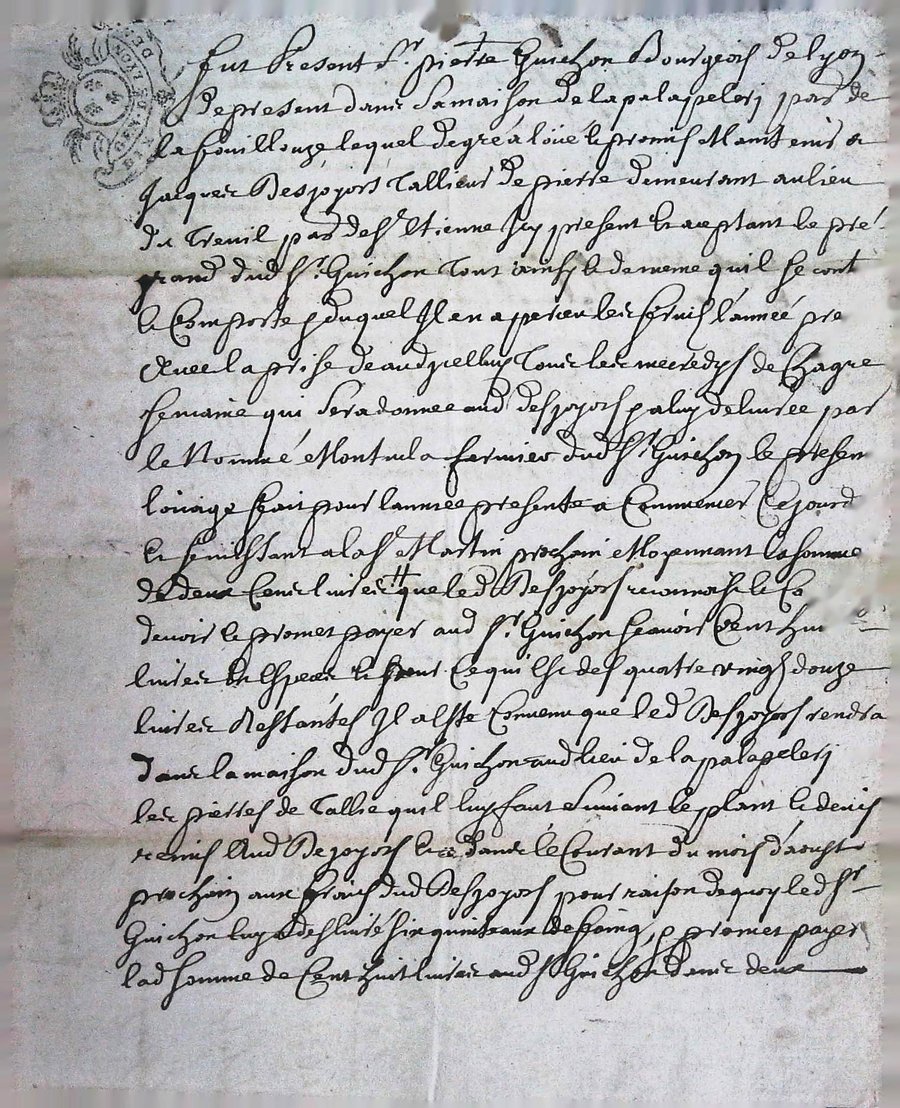 fut Present Sr. pierre Guichon Bourgeois de lyon
de present dans sa maison de la palapelerj par de
la fouillouze lequel de gré a loüé & promis Maintenir a
Jacques Desjoyors Tallieur de pierre demeurant au lieu
du Treuil par de St. Etienne Icy present & aceptant le pré
grand dud Sr. Guichon Tout ainsy & de meme quil se cont
& Comporte & duquel Il en a perceu les fruis l'année pre
Avec la prise deaud Tous les mecredys de Chaque
semaine qui sera donnee aud Desjoyors & a luy delivrée par
le Nommé fermier dud Sr. Guichon le presen
loüage fait pour lannee presente a Commencer Cejourd
& finissant a la St. Martin prochain Moyennant la somme
de deux Cens livres que led Desjoyors reconnois &
devoir & promet payer aud Sr. Guichon scavoir Cent hui
livres En Especes & pour Ce qui Est des quatre vingt douze
livres Restantes Il a Este Convenu que led Desjoyors rendra
dans la maison dud Sr. Guichon aud lieu de la palapelerj
les pierres de Tallie quil luy faut suivant le plant & devis
remis Aud Dejoyors & ce dans le Courant du mois d'aoust
prochain aux frais dud Desjoyors pour raison de quoy led Sr
Guichon luy a deslivré six quinteaux de foing, & promet payer
lad somme de Cent huit livres aud Sr Guichon dans deux